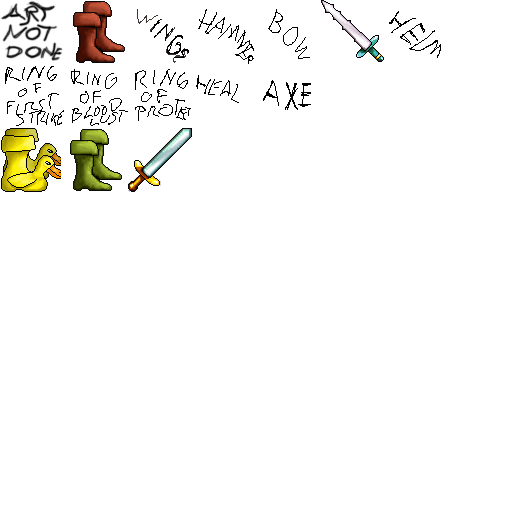 ART
NOT
DONE
WINGS
HAMMER
BOW
HELM
RING
OF
FIRST
STRIKE
RING
OF
BLOOD
LUST
RING
OF
PROTE
HEAL
AXE